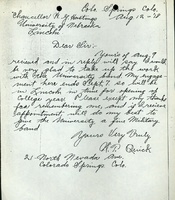 Colo. Springs Colo.
Aug. 12 - '18
Chancellor
University of Nebraska
Lincoln
Dear Sir:
Yours of Aug. 9
received and in reply will say
be very glad to take up the work with
the University band. My engage-
ment here ends Sept. 7. so will be
in Lincoln in time for opening of
college year. Please accept my thanks
for remembering me, and if I receive
appointment, will do my best to
give the University a fine Military
band.
Yours Very Truly
Quick
21 North Nevada Ave.
Colorado Springs
Colo.